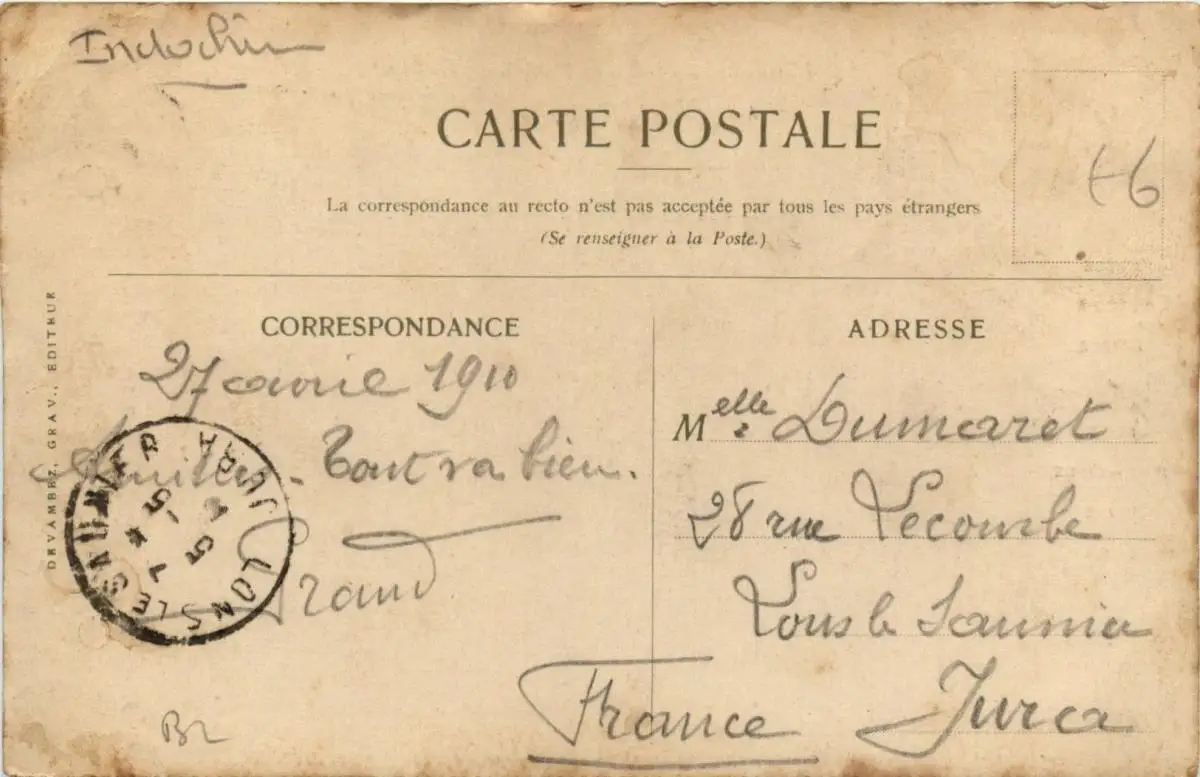 Indochin
CARTE POSTALE
La correspondance au recto n'est pas acceptée par tous les pays étrangers
(Se renseigner à la Poste.)
t6
DEVAMBEZ, GRAV., EDITEUR
CORRESPONDANCE
27 avril 1910
Tout va bien.
LONS LE SAUNIER JURA
ADRESSE
Melle Dumaret
28 rue Lecourbe
Lons le Saunier
Jura
France